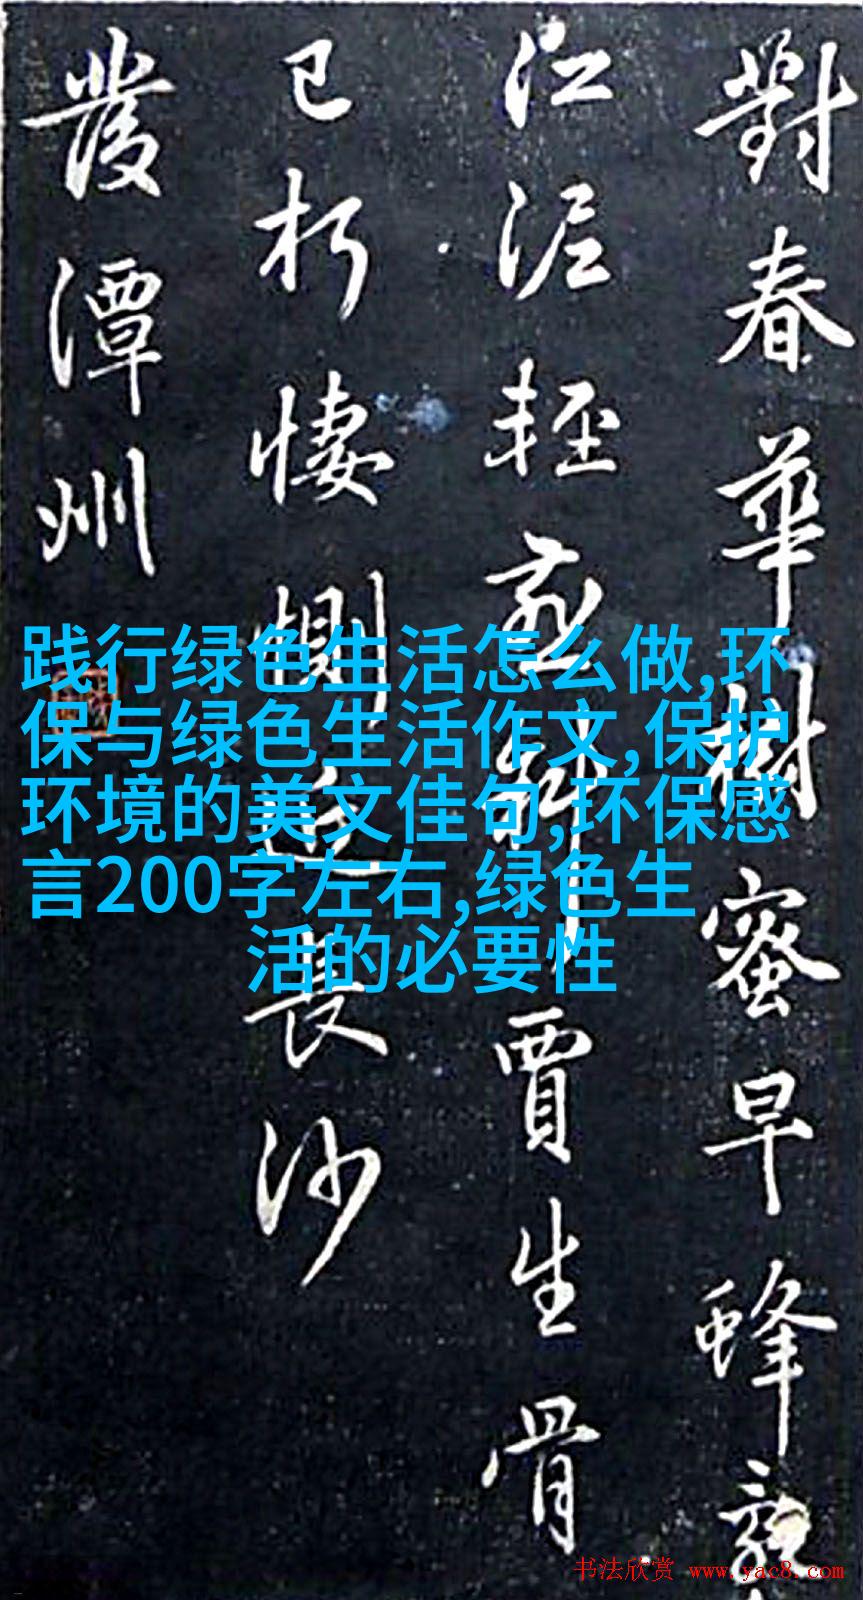 對春華樹蜜早蜂亂
江泥輕燕斜賈生骨
已朽悽惻近長沙
發潭州
践行绿色生活怎么做,环
保与绿色生活作文,保护
环境的美文佳句,环保感
言200字左右,绿色生
活的必要性
书法欣赏 www.yac8.com